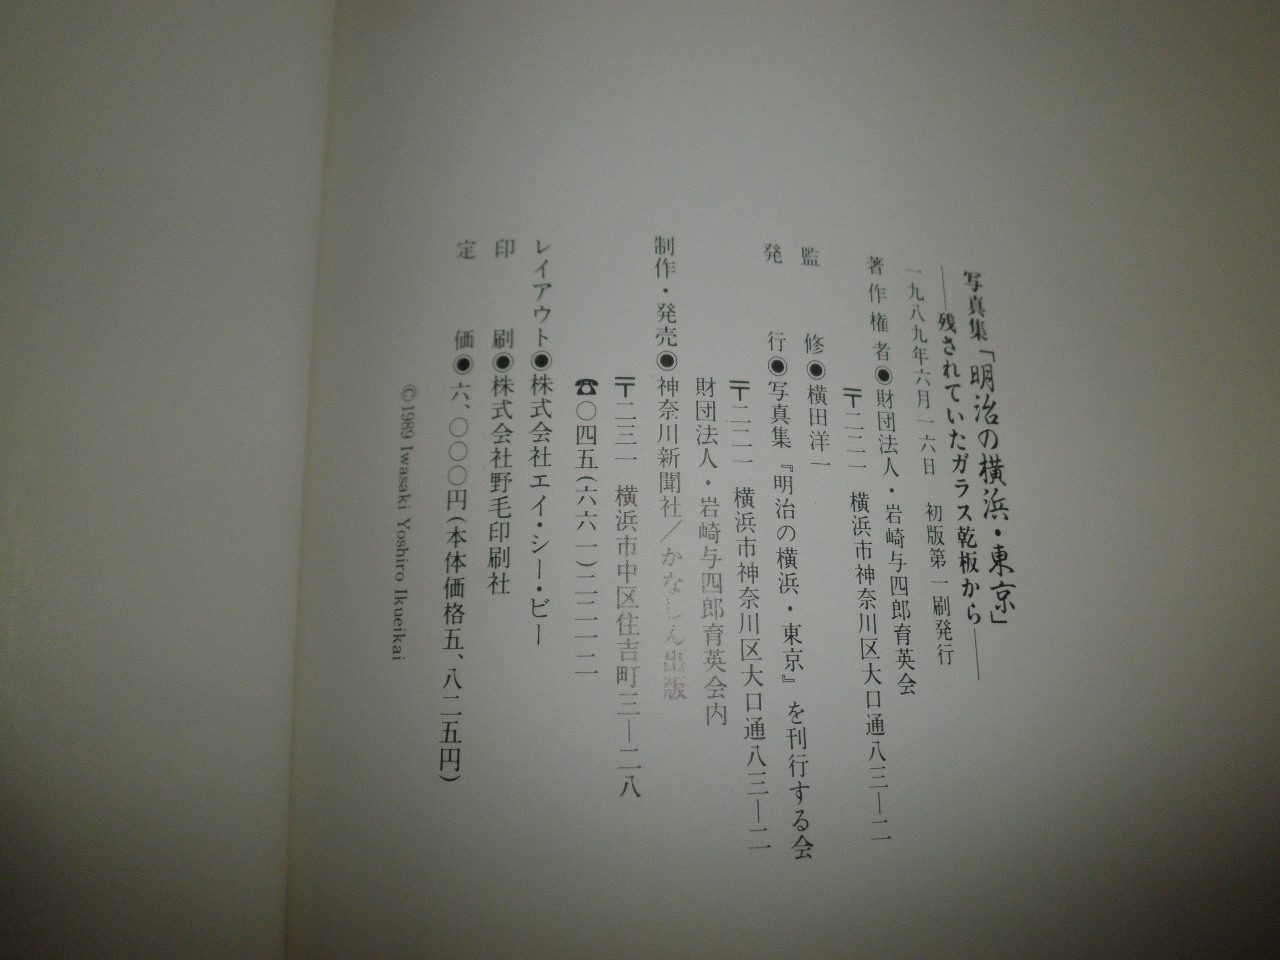 写真集「明治の横浜・東京」
――残されていたガラス乾板から――
一九八九年六月一六日　初版第一刷発行
著作権者◉財団法人・岩崎与四郎育英会
〒二二一　横浜市神奈川区大口通八三―二
監修◉横田洋一
発行◉写真集『明治の横浜・東京』を刊行する会
〒二二一　横浜市神奈川区大口通八三―二
財団法人・岩崎与四郎育英会内
制作・発売◉神奈川新聞社／かなしん出版
〒二三一　横浜市中区住吉町三―二八
☎〇四五(六六一)二二一二
レイアウト◉株式会社エイ・シー・ビー
印刷◉株式会社野毛印刷社
定価◉六、〇〇〇円(本体価格五、八二五円)
©1989 Iwasaki Yoshiro Ikueikai